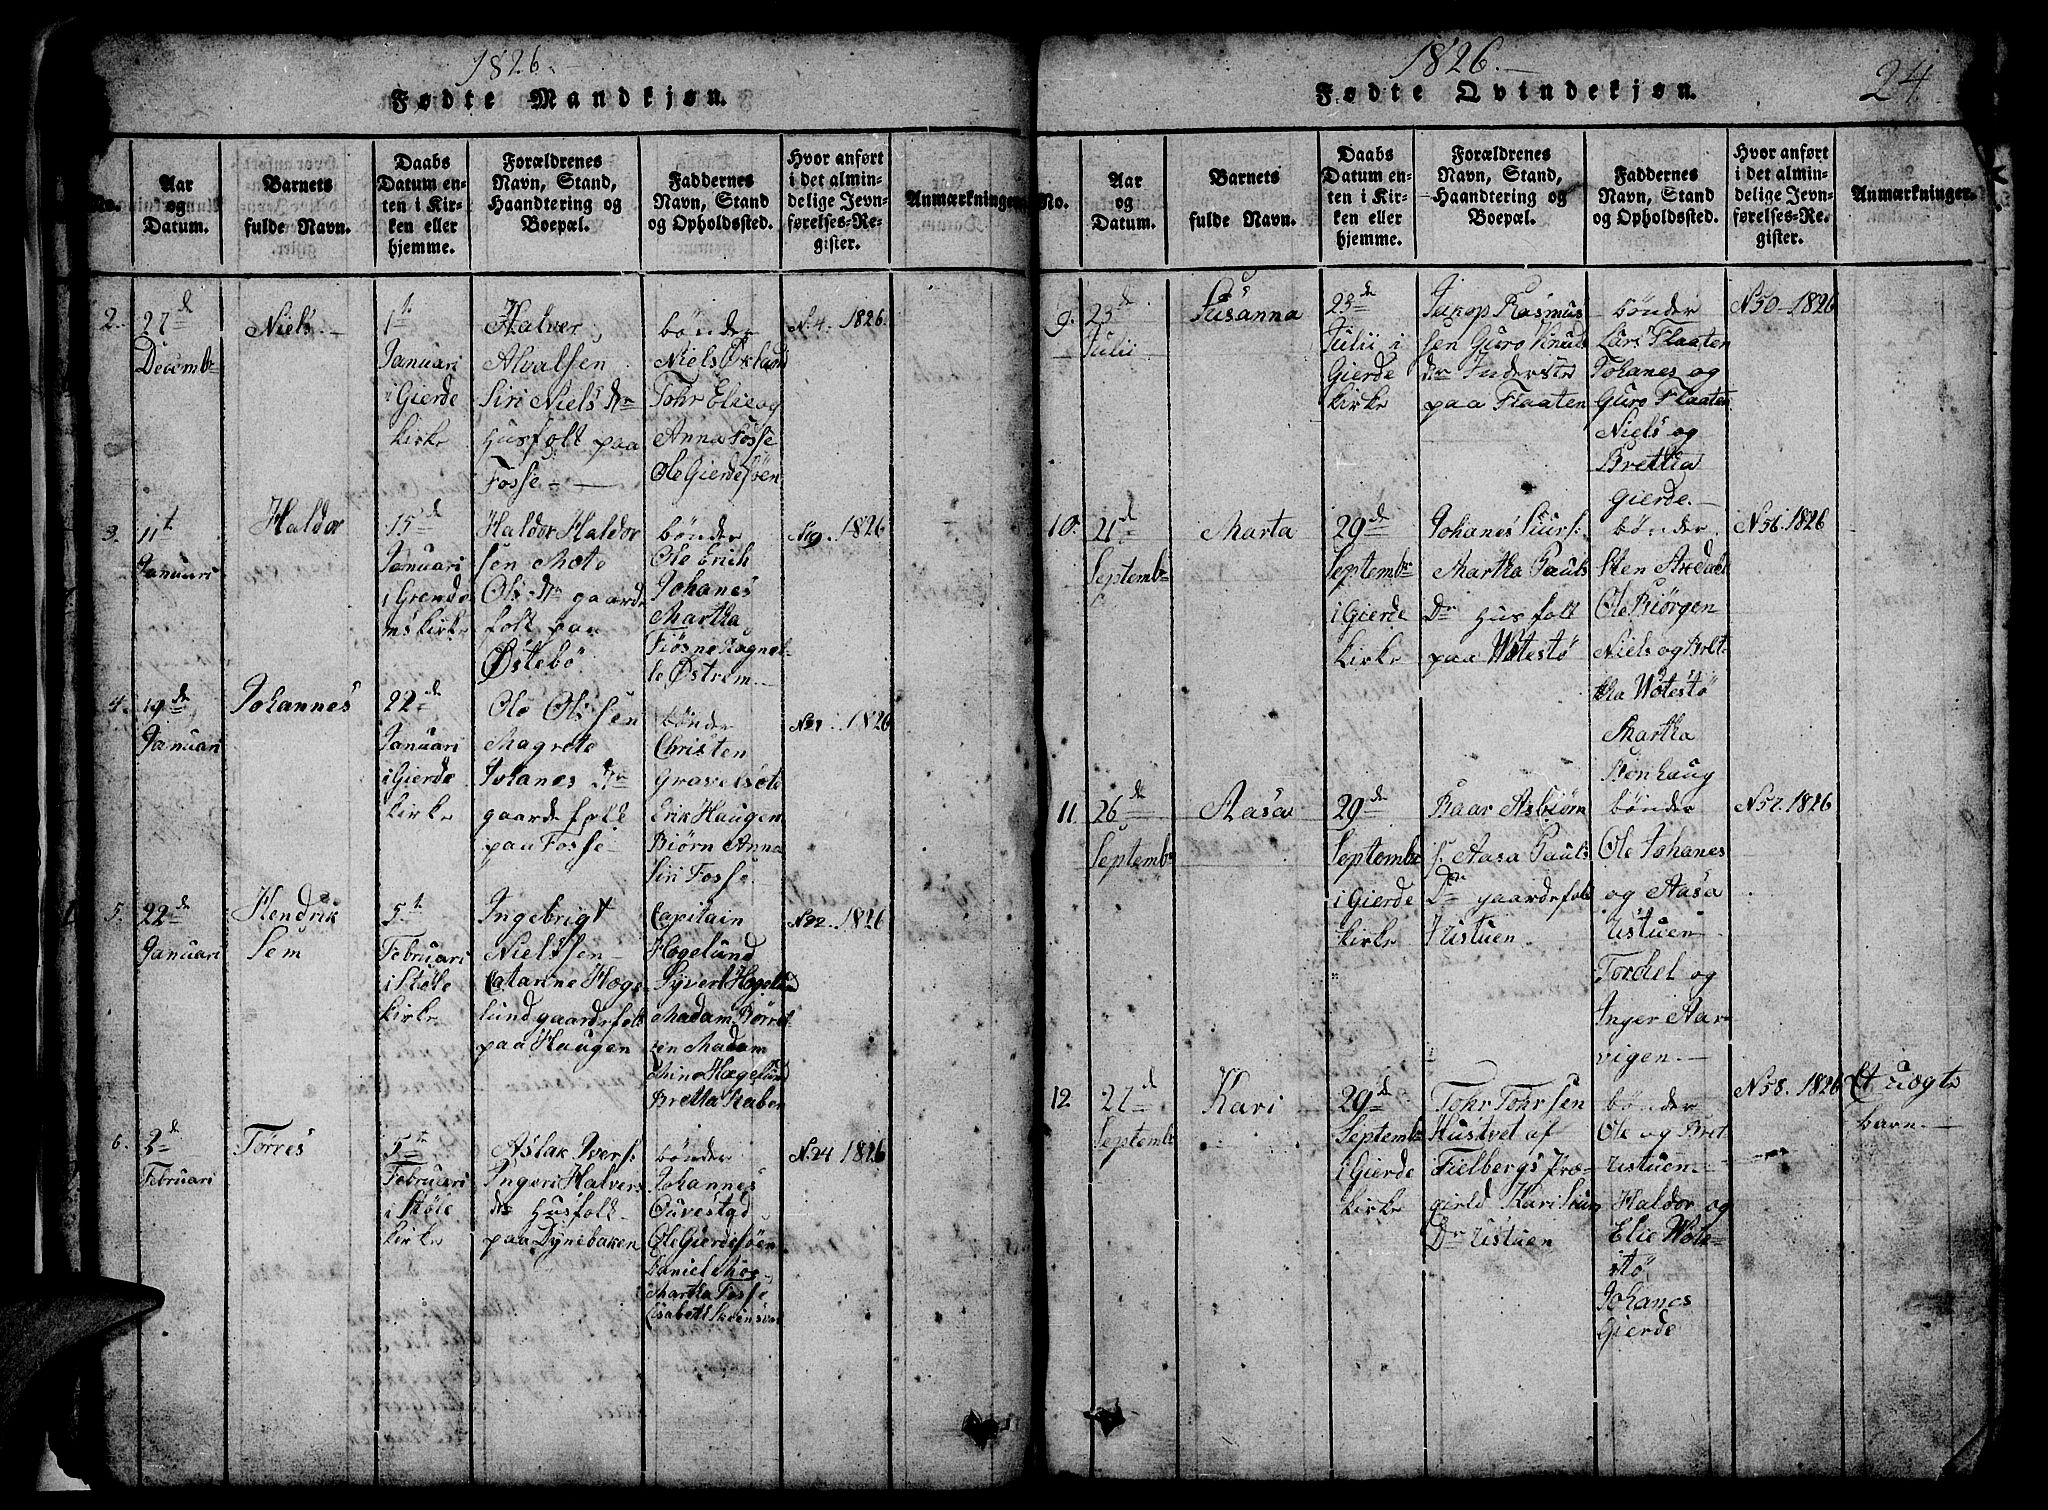 1826.
Fødte Mandkjøn.
No.
Aar
og
Datum.
Barnets
fulde Navn.
Daabs
Datum en-
ten i Kir-
ken eller
hjemme.
Forældrenes
Navn, Stand,
Haandtering og
Boepæl.
Faddernes
Navn, Stand
og Opholdssted.
Hvor anført
i det almin-
delige Jevn-
førelses-Re-
gister.
Anmærkninger.
2.
27de
Decembr
Niels.
1t
Januari
i Gierde
kirke
Halver
Alvalsen
Siri Niels Dr
husfolk paa
Fosse
bønder
Niels Øxland
Tohr Elie og
Anna Fosse
Ole Gierdesøen
N.4. 1826.
3.
11t
Januari
Haldor
15de
Januari
i Grendo
ms kirke
Haldor Haldor
sen Mete
Ols Dr gaarde
folk paa
Østebö
bønder
Ole Erich
Johanes
Martha
Fiøsne Ragnel-
le Østrem
N9. 1826
4.
19de
Januari
Johannes
22de
Januari
i Gierde
kirke
Ole Olssen
Magrete
Johanes Dr
gaardefolk
paa Fosse
bønder
Christen
gravelsæte
Erik Haugen
Biørn Anna
Siri Fosse
N21. 1826
5.
22de
Januari
Hendrik
Sem
5te
Februari
i Støle
kirke
Ingebrigt
Nielssen
Catarine Hæge
lund gaardefolk
paa Haugen
Capitain
Hægelund
Syvert Hægelund
Madam Børret
zen Madam
Hægelund
Bretta Raben
N22. 1826
6.
3de
Februari
Tørres
5te
Februari
i Støle
kirke
Aslak Ivers:
Ingeri Halvers
dr husfolk
paa Dynebaken
bønder
Johannes
Ouvestad
Ole Gierdesøen
Daniel Moe
Martha Fosse
Elsabeth
N.24 1826
1826.
Fødte Qvindekjøn.
24.
No.
Aar
og
Datum.
Barnets
fulde Navn.
Daabs
Datum en-
ten i Kir-
ken eller
hjemme.
Forældrenes
Navn, Stand,
Haandtering og
Boepæl.
Faddernes
Navn, Stand
og Opholdssted.
Hvor anført
i det almin-
delige Jevn-
førelses-Re-
gister.
Anmærkninger.
9.
23de
Julii
Susanna
23de
Julii i
Gierde
kirke
Jakop Rasmus
sen Guro Knuds
dr Inderster
paa Flaaten
bønder
Lars Flaaten
Johanes og
Guro Flaaten
Niels og
Brettha
gierde.
N50 1826
10.
21de
Septembr
Marta
29de
Septembr
i Gierde
kirke
Johanes Siurs:
Martha Pauls
Dr husfolk
paa Wotestø
bønder
Sten Axdael
Ole Biørgen
Niels og Bret-
tha Wotestö
Martha
Stenhaug
N56. 1826
11.
26de
Septembr
Aasa
29de
Septembr
i Gierde
kirke
Baar Asbiørn
s: Aasa Pauls
Dr gaardefolk
Ustuen
bønder
Ole Johanes
og Aasa
Ustuen
Torchel og
Inger Aar-
vigen.
N57. 1826
12.
27de
Septembr
Kari
29de
Septembr
i Gierde
kirke
Tohr Tohrsen
Hustvet af
Fielbergs Præ-
gield Kari Siurs
Dr Ustuen
bønder
Ole og Bret
Ustuen
Haldor og
Elie Wote-
stø
Johanes
Gierde
N58. 1826
Et uægte
barn.